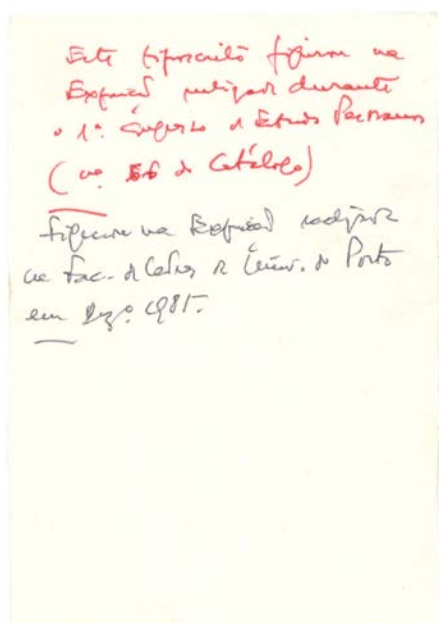 Este tiposcrito figurou na
Exposição realizada durante
o 1º. Congresso de Estudos Pessoanos
(nº 56 do Catálogo)
Figurou na Exposição realizada
na Fac. de Letras da Univ. do Porto
em 1985.